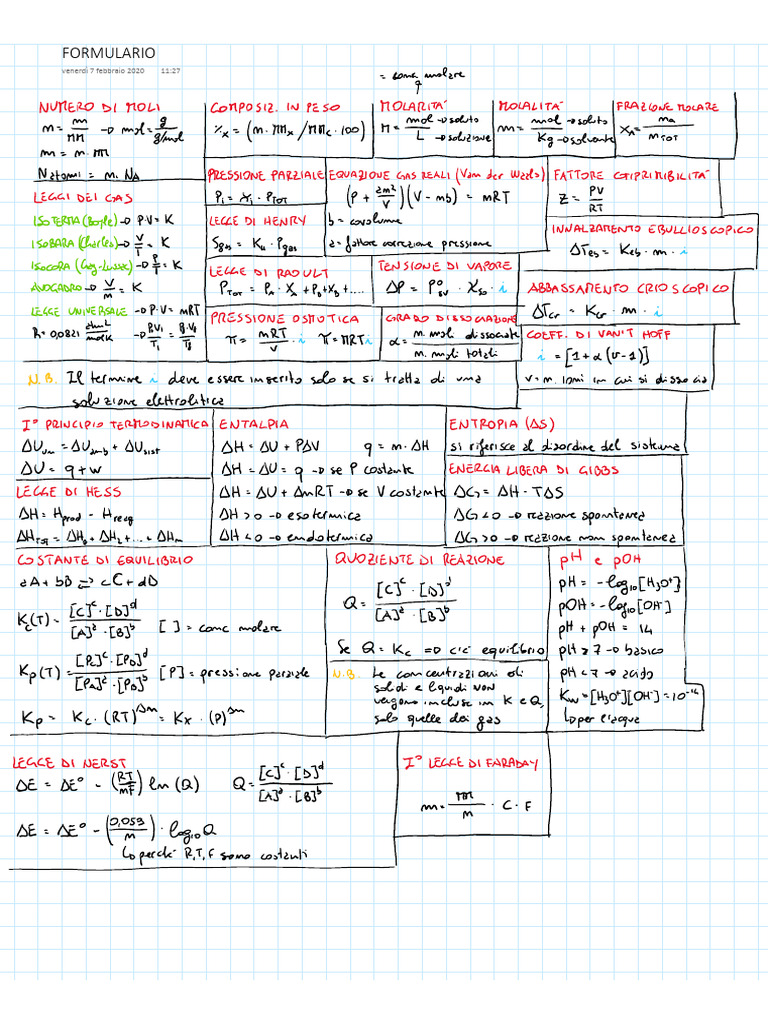 FORMULARIO
venerdì 7 febbraio 2020 11:27
= conc. molare
NUMERO DI MOLI
n = m/MM → mol = g/(g/mol)
m = n · MM
N atomi = n · NA
COMPOSIZ. IN PESO
%x = (n · MMx / MMc · 100)
MOLARITA'
M = mol → soluto / L → soluzione
MOLALITA'
m = mol → soluto / Kg → solvente
FRAZIONE MOLARE
XA = na / nTOT
LEGGI DEI GAS
ISOTERMA (Boyle) → P·V = K
ISOBARA (Charles) → V/T = K
ISOCORA (Gay-Lussac) → P/T = K
AVOGADRO → V/n = K
LEGGE UNIVERSALE → P·V = nRT
R = 0,0821 atm L / mol K → P1V1/T1 = P2·V2/T2
PRESSIONE PARZIALE
Pi = Xi · PTOT
LEGGE DI HENRY
Sgas = KH · Pgas
EQUAZIONE GAS REALI (Van der Waals)
(P + an²/V)(V - nb) = nRT
b = covolume
a = fattore correzione pressione
FATTORE COMPRIMIBILITA'
Z = PV/RT
INNALZAMENTO EBULLIOSCOPICO
ΔTeb = Keb · m · i
LEGGE DI RAOULT
PTOT = PA · XA + PB + XB + ....
TENSIONE DI VAPORE
ΔP = P°sv · Xso · i
ABBASSAMENTO CRIOSCOPICO
ΔTcr = Kcr · m · i
PRESSIONE OSMOTICA
π = nRT/V · i π = MRTi
GRADO DISSOCIAZIONE
α = n. moli dissociate / n. moli totali
COEFF. DI VAN'T HOFF
i = [1 + α(ν-1)]
ν = n. ioni in cui si dissocia
N.B. Il termine i deve essere inserito solo se si tratta di una
soluzione elettrolitica
I° PRINCIPIO TERMODINAMICA
ΔUun = ΔUamb + ΔUsist
ΔU = q + w
LEGGE DI HESS
ΔH = Hprod - Hreag
ΔHTOT = ΔH1 + ΔH2 + ... + ΔHn
ENTALPIA
ΔH = ΔU + PΔV q = n · ΔH
ΔH = ΔU = q → se P costante
ΔH = ΔU + ΔnRT → se V costante
ΔH > 0 → esotermica
ΔH < 0 → endotermica
ENTROPIA (ΔS)
si riferisce al disordine del sistema
ENERGIA LIBERA DI GIBBS
ΔG = ΔH - TΔS
ΔG < 0 → reazione spontanea
ΔG > 0 → reazione non spontanea
COSTANTE DI EQUILIBRIO
aA + bB ⇌ cC + dD
Kc(T) = [C]ᶜ · [D]ᵈ / [A]ᵃ · [B]ᵇ [ ] = conc molare
Kp(T) = [Pc]ᶜ · [PD]ᵈ / [PA]ᵃ · [PB]ᵇ [P] = pressione parziale
Kp = Kc · (RT)^Δn = Kx · (P)^Δn
QUOZIENTE DI REAZIONE
Q = [C]ᶜ · [D]ᵈ / [A]ᵃ · [B]ᵇ
Se Q = Kc ⇒ c'è equilibrio
N.B. Le concentrazioni di
solidi e liquidi non
vengono incluse in K e Q,
solo quelle dei gas
pH e pOH
pH = -log10[H3O⁺]
pOH = -log10[OH⁻]
pH + pOH = 14
pH > 7 → basico
pH < 7 → acido
Kw = [H3O⁺][OH⁻] = 10⁻¹⁴
↳ per l'acqua
LEGGE DI NERST
ΔE = ΔE° - (RT/nF) ln (Q) Q = [C]ᶜ · [D]ᵈ / [A]ᵃ · [B]ᵇ
ΔE = ΔE° - (0,059/n) · log10 Q
↳ perché R,T,F sono costanti
I° LEGGE DI FARADAY
m = MM/n · C · F